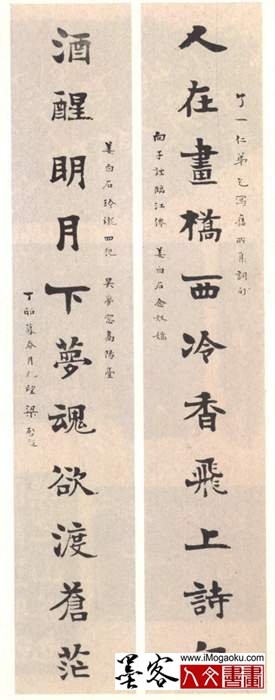 一仁弟乞寫舊所集詞句
人在畫橋西冷香飛上詩
向子諲臨江僊 姜白石念奴嬌
姜白石玲瓏四犯 吳夢窗高陽臺
酒醒眀月下夢魂欲渡蒼茫
丁卯暮春 梁啓超
墨客
www.iMogaoku.com
人文書畫